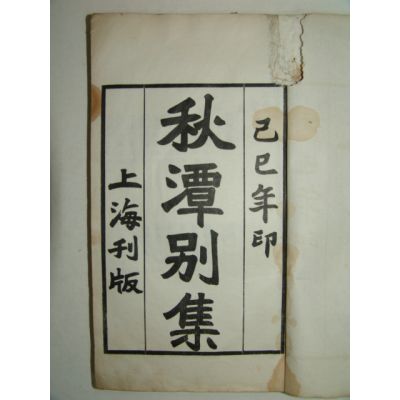 己巳年印
秋潭別集
上海刊版